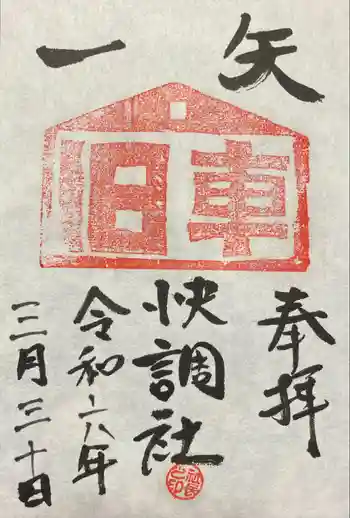 矢一
旧車
奉拝
快調社
令和六年
三月三十日